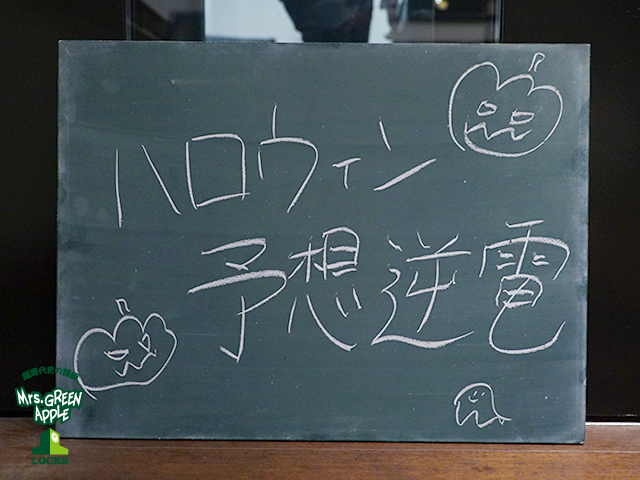 ハロウィン
予想逆電
Mrs. GREEN
APPLE
LOCKS